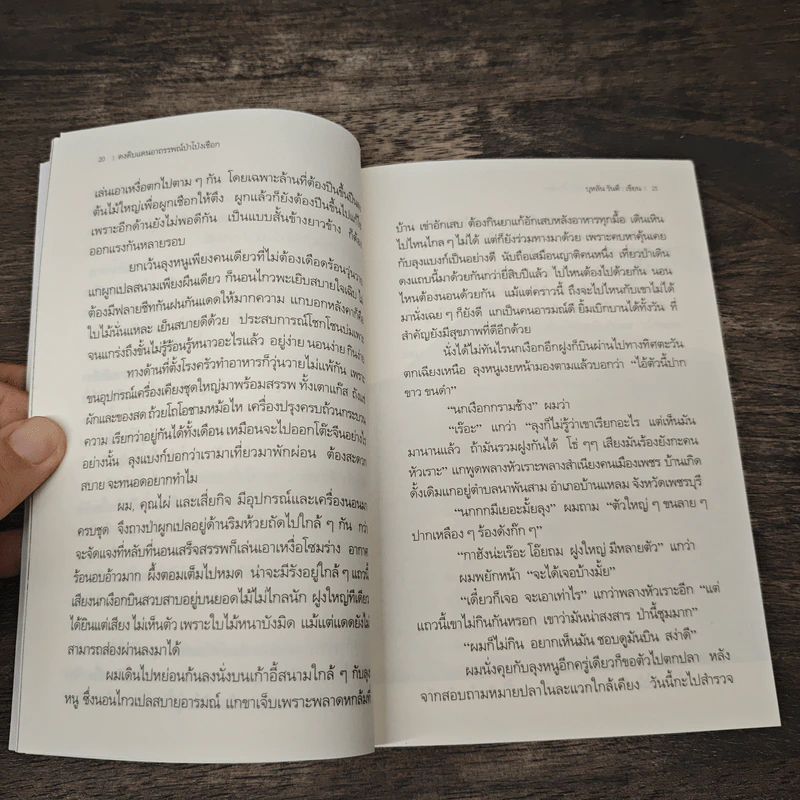 20 : ดงดิบแดนอาถรรพณ์ป่าโป่งเชือก
เล่นเอาเหงื่อตกไปตาม ๆ กัน โดยเฉพาะล้านที่ต้องปีนขึ้นปีนลง
ต้นไม้ใหญ่เพื่อผูกเชือกให้ตึง ผูกแล้วก็ยังต้องปีนขึ้นไปแก้ไข
เพราะอีกด้านยังไม่พอดีกัน เป็นแบบสั้นข้างยาวข้าง ก็ต้อง
ออกแรงกันหลายรอบ
ยกเว้นลุงหนูเพียงคนเดียวที่ไม่ต้องเดือดร้อนวุ่นวาย
แกผูกเปลสนามเพียงผืนเดียว ก็นอนไกวพะเยิบสบายใจเฉิบ ไม่
ต้องมีฟลายชีทกันฝนกันแดดให้มากความ แกบอกหลังคาก็คือ
ใบไม้นั่นแหละ เย็นสบายดีด้วย ประสบการณ์โชกโชนบ่มเพาะ
จนแกร่งถึงขั้นไม่รู้ร้อนรู้หนาวอะไรแล้ว อยู่ง่าย นอนง่าย กินง่าย
ทางด้านที่ตั้งโรงครัวทำอาหารก็วุ่นวายไม่แพ้กัน เพราะ
ขนอุปกรณ์เครื่องเคียงชุดใหญ่มาพร้อมสรรพ ทั้งเตาแก๊ส ถังแช่
ผักและของสด ถ้วยโถโอชามหม้อไห เครื่องปรุงครบถ้วนกระบวน
ความ เรียกว่าอยู่กันได้ทั้งเดือน เหมือนจะไปออกโต๊ะจีนอย่างไร
อย่างนั้น ลุงแบงก์บอกว่าเรามาเที่ยวมาพักผ่อน ต้องสะดวก
สบาย จะทนอดอยากทำไม
ผม, คุณไผ่ และเสี่ยกิจ มีอุปกรณ์และเครื่องนอนมา
ครบชุด จึงกางป่าผูกเปลอยู่ด้านริมห้วยถัดไปใกล้ ๆ กัน กว่า
จะจัดแจงที่หลับที่นอนเสร็จสรรพก็เล่นเอาเหงื่อโซมร่าง อากาศ
ร้อนอบอ้าวมาก ผึ้งตอมเต็มไปหมด น่าจะมีรังอยู่ใกล้ ๆ แถวนี้
เสียงนกเงือกบินสวบสาบอยู่บนยอดไม้ไม่ไกลนัก ฝูงใหญ่ทีเดียว
ได้ยินแต่เสียง ไม่เห็นตัว เพราะใบไม้หนาบังมิด แม้แต่แดดยังไม่
สามารถส่องผ่านลงมาได้
ผมเดินไปหย่อนก้นลงนั่งบนเก้าอี้สนามใกล้ ๆ กับลุง
หนู ซึ่งนอนไกวเปลสบายอารมณ์ แกขาเจ็บเพราะพลาดหกล้มที่
บุหลัน วันดี : เขียน : 21
บ้าน เข่าอักเสบ ต้องกินยาแก้อักเสบหลังอาหารทุกมื้อ เดินเหิน
ไปไหนไกล ๆ ไม่ได้ แต่ก็ยังร่วมทางมาด้วย เพราะคบหาคุ้นเคย
กับลุงแบงก์เป็นอย่างดี นับถือเสมือนญาติคนหนึ่ง เที่ยวป่าเดิน
ดงแถบนี้มาด้วยกันกว่ายี่สิบปีแล้ว ไปไหนต้องไปด้วยกัน นอน
ไหนต้องนอนด้วยกัน แม้แต่คราวนี้ ถึงจะไปไหนกับเขาไม่ได้
มานั่งเฉย ๆ ก็ยังดี แกเป็นคนอารมณ์ดี ยิ้มเบิกบานได้ทั้งวัน ที่
สำคัญยังมีสุขภาพที่ดีอีกด้วย
นั่งได้ไม่ทันไรนกเงือกอีกฝูงก็บินผ่านไปทางทิศตะวัน
ตกเฉียงเหนือ ลุงหนูเงยหน้ามองตามแล้วบอกว่า “ไอ้ตัวนี้ปาก
ขาว ขนดำ”
“นกเงือกกรามช้าง” ผมว่า
“เร้อะ” แกว่า “ลุงก็ไม่รู้ว่าเขาเรียกอะไร แต่เห็นมัน
มานานแล้ว ถ้ามันรวมฝูงกันได้ โธ่ ๆๆ เสียงมันร้องยังกะคน
หัวเราะ” แกพูดพลางหัวเราะพลางสำเนียงคนเมืองเพชร บ้านเกิด
ดั้งเดิมแกอยู่ตำบลนาพันสาม อำเภอบ้านแหลม จังหวัดเพชรบุรี
“นกกกมีเยอะมั้ยลุง” ผมถาม “ตัวใหญ่ ๆ ขนลาย ๆ
ปากเหลือง ๆ ร้องดังก๊ก ๆ”
“กาฮังน่ะเร้อะ โอ๊ยถม ฝูงใหญ่ มีหลายตัว” แกว่า
ผมพยักหน้า “จะได้เจอบ้างมั้ย”
“เดี๋ยวก็เจอ จะเอาเท่าไร” แกว่าพลางหัวเราะอีก “แต่
แถวนี้เขาไม่กินกันหรอก เขาว่ามันน่าสงสาร ป่านี้ชุมมาก”
“ผมก็ไม่กิน อยากเห็นมัน ชอบดูมันบิน สง่าดี”
ผมนั่งคุยกับลุงหนูอีกครู่เดียวก็ขอตัวไปตกปลา หลัง
จากสอบถามหมายปลาในละแวกใกล้เคียง วันนี้กะไปสำรวจ